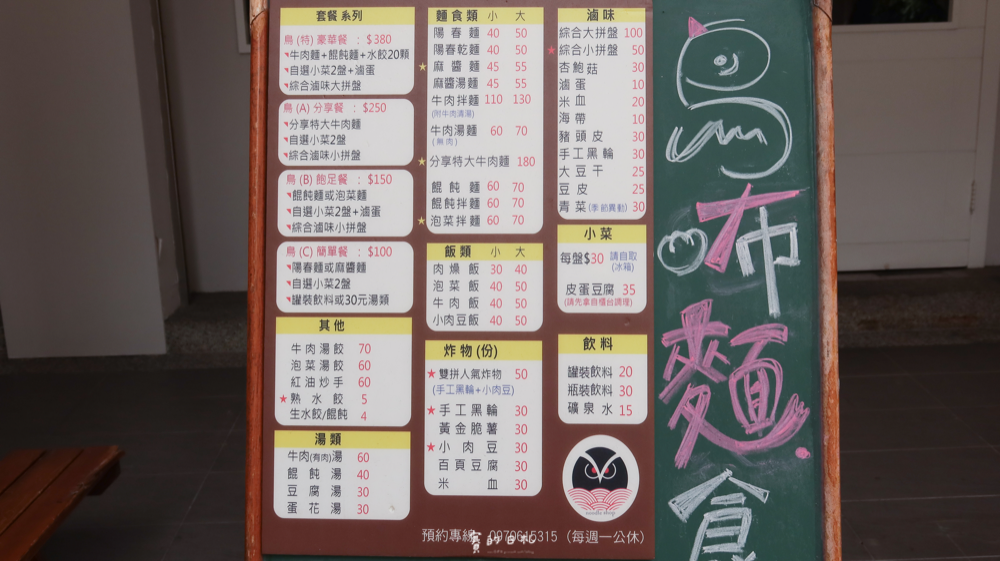 套餐系列
鳥(特)豪華餐：$380
牛肉麵+餛飩麵+水餃20顆
自選小菜2盤+滷蛋
綜合滷味大拼盤
鳥(A)分享餐：$250
分享特大牛肉麵
自選小菜2盤
綜合滷味小拼盤
鳥(B)飽足餐：$150
餛飩麵或泡菜麵
自選小菜2盤+滷蛋
綜合滷味小拼盤
鳥(C)簡單餐：$100
陽春麵或麻醬麵
自選小菜2盤
罐裝飲料或30元湯類
其他
牛肉湯餃 70
泡菜湯餃 60
紅油炒手 60
★熟水餃 5
生水餃/餛飩 4
湯類
牛肉(有肉)湯 60
餛飩湯 40
豆腐湯 30
蛋花湯 30
麵食類 小 大
陽春麵 40 50
陽春乾麵 40 50
★麻醬麵 45 55
麻醬湯麵 45 55
牛肉拌麵 110 130
(附牛肉清湯)
牛肉湯麵 60 70
(無肉)
★分享特大牛肉麵 180
餛飩麵 60 70
餛飩拌麵 60 70
★泡菜拌麵 60 70
飯類 小 大
肉燥飯 30 40
泡菜飯 40 50
牛肉飯 40 50
小肉豆飯 40 50
炸物(份)
★雙拼人氣炸物 50
(手工黑輪+小肉豆)
★手工黑輪 30
黃金脆薯 30
★小肉豆 30
百頁豆腐 30
米血 30
滷味
綜合大拼盤 100
★綜合小拼盤 50
杏鮑菇 30
滷蛋 10
米血 20
海帶 10
豬頭皮 30
手工黑輪 30
大豆干 25
豆皮 25
青菜(季節異動) 30
小菜
每盤$30 請自取
(冰箱)
皮蛋豆腐 35
(請先拿自櫃台調理)
飲料
罐裝飲料 20
瓶裝飲料 30
礦泉水 15
noodle shop
預約專線 0970615315（每週一公休）
鳥
啊
麵
食